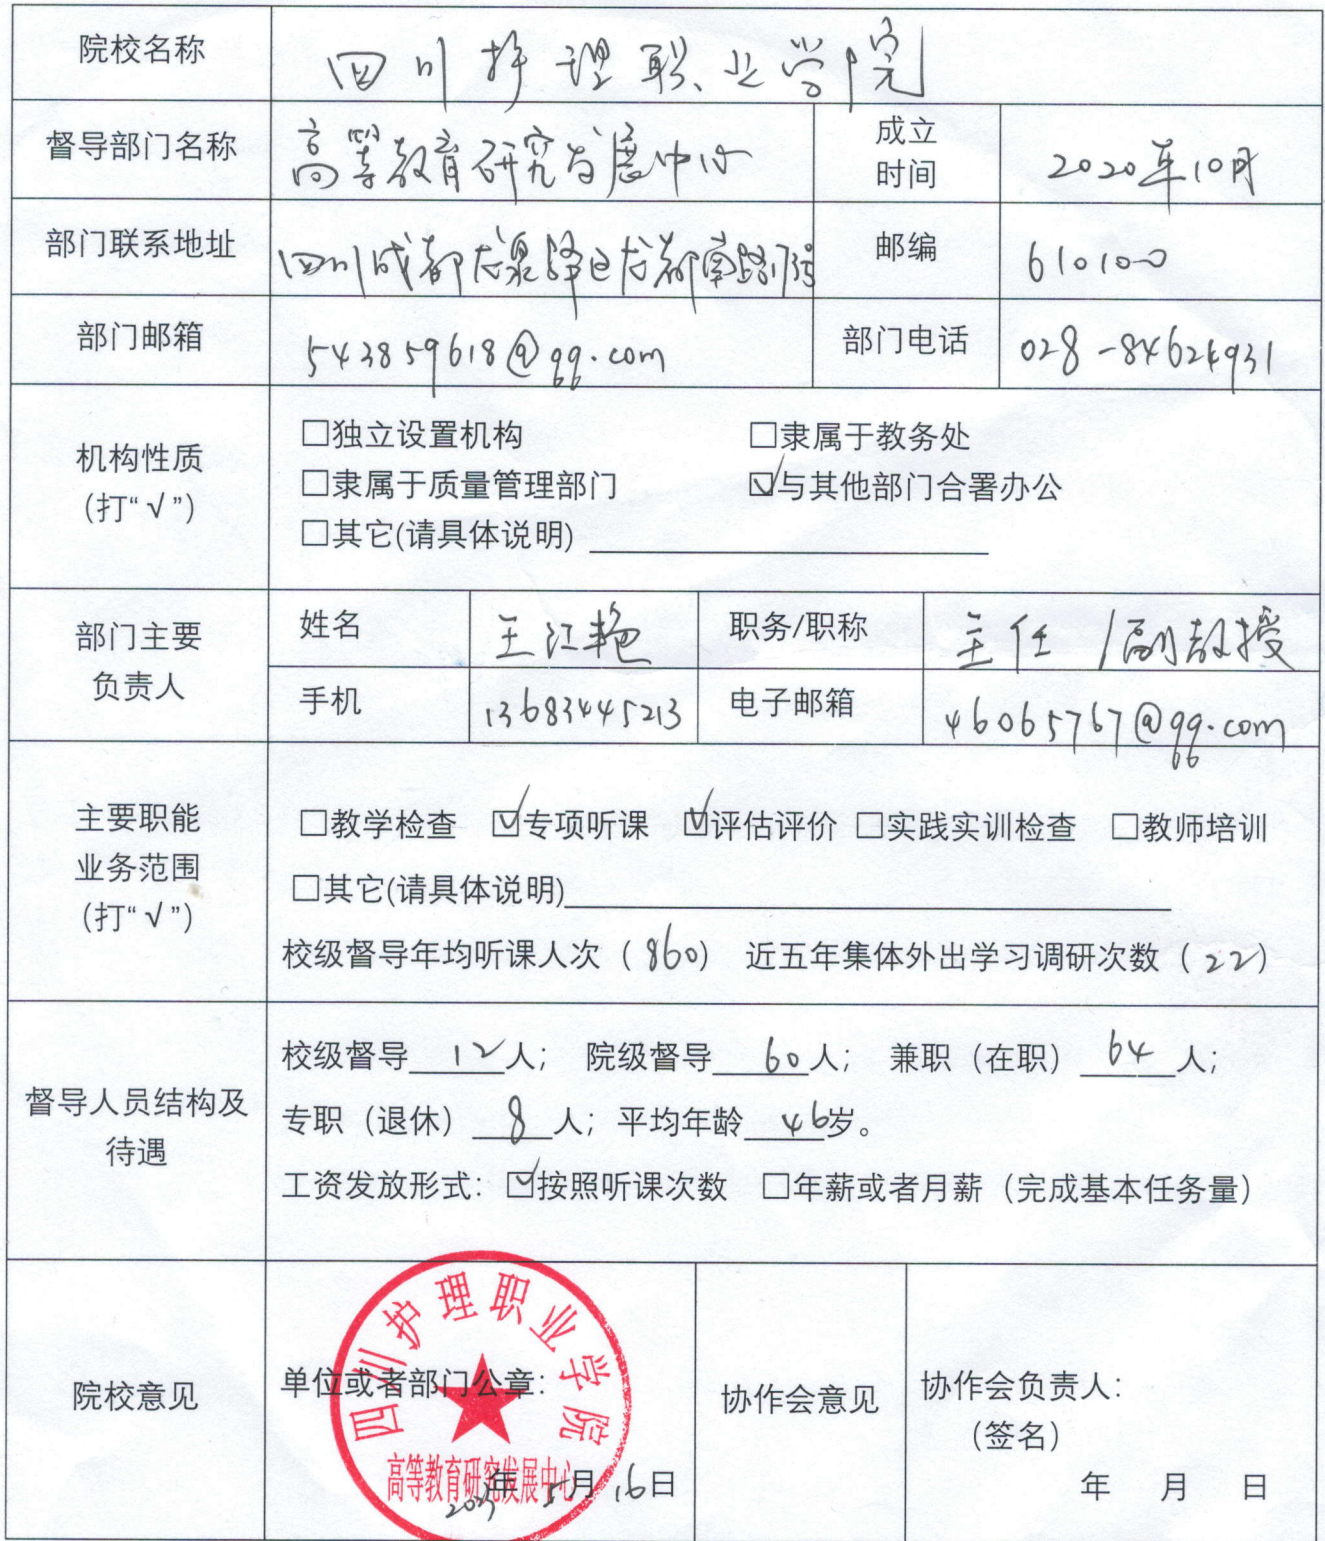 院校名称 四川护理职业学院
督导部门名称 高等教育研究发展中心 成立时间 2020年10月
部门联系地址 四川成都龙泉驿区龙都南路173号 邮编 610100
部门邮箱 543859618@qq.com 部门电话 028-84624931
机构性质
(打“√”)
□独立设置机构 □隶属于教务处
□隶属于质量管理部门 ☑与其他部门合署办公
□其它(请具体说明)
部门主要
负责人
姓名 王江艳 职务/职称 主任/副教授
手机 13683445213 电子邮箱 46065767@qq.com
主要职能
业务范围
(打“√”)
□教学检查 ☑专项听课 ☑评估评价 □实践实训检查 □教师培训
□其它(请具体说明)
校级督导年均听课人次（860） 近五年集体外出学习调研次数（22）
督导人员结构及
待遇
校级督导 12 人; 院级督导 60 人; 兼职（在职） 64 人;
专职（退休） 8 人; 平均年龄 46 岁。
工资发放形式: ☑按照听课次数 □年薪或者月薪（完成基本任务量）
院校意见
四川护理职业学院
单位或者部门公章:
高等教育研究发展中心
年 5月 16日
协作会意见
协作会负责人:
（签名）
年 月 日